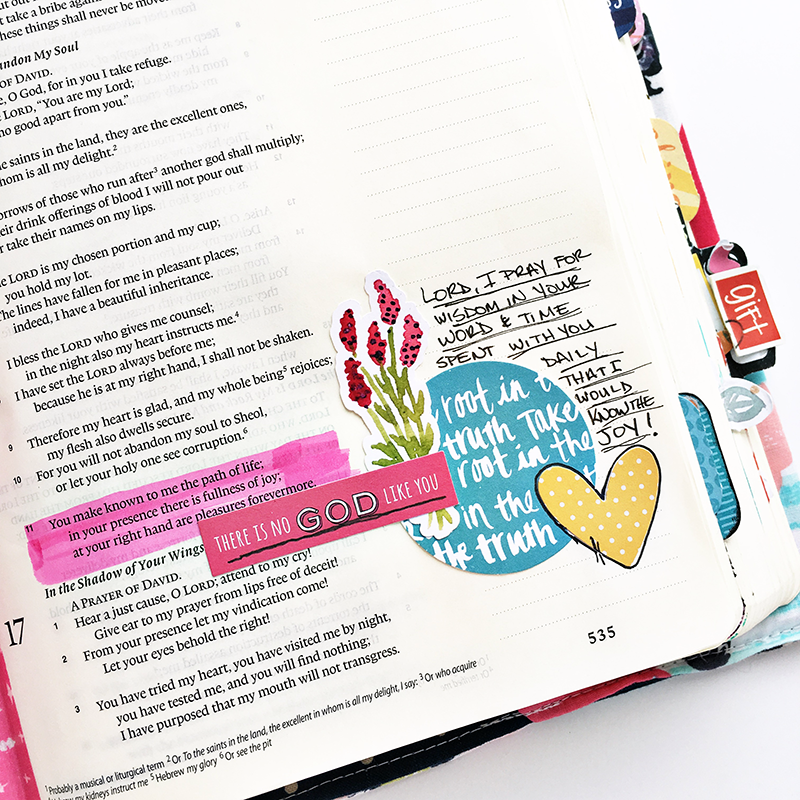 take a bribe against
these things shall never be moved
ndon My Soul
OF DAVID.
e, O God, for in you I take refuge.
LORD, "You are my Lord;
no good apart from you."
he saints in the land, they are the excellent ones,
whom is all my delight.2
orrows of those who run after3 another god shall multiply;
eir drink offerings of blood I will not pour out
r take their names on my lips.
he LORD is my chosen portion and my cup;
you hold my lot.
The lines have fallen for me in pleasant places;
indeed, I have a beautiful inheritance.
I bless the LORD who gives me counsel;
in the night also my heart instructs me.4
I have set the LORD always before me;
because he is at my right hand, I shall not be shaken.
9 Therefore my heart is glad, and my whole being5 rejoices;
my flesh also dwells secure.
10 For you will not abandon my soul to Sheol,
or let your holy one see corruption.6
11 You make known to me the path of life;
in your presence there is fullness of joy;
at your right hand are pleasures forevermore.
In the Shadow of Your Wings
17 A PRAYER OF DAVID.
1 Hear a just cause, O LORD; attend to my cry!
Give ear to my prayer from lips free of deceit!
2 From your presence let my vindication come!
Let your eyes behold the right!
3 You have tried my heart, you have visited me by night,
you have tested me, and you will find nothing;
I have purposed that my mouth will not transgress.
1 Probably a musical or liturgical term 2 Or To the saints in the land, the excellent in whom is all my delight, I say: 3 Or who acquire
my kidneys instruct me 5 Hebrew my glory 6 Or see the pit
535
LORD, I PRAY FOR
WISDOM IN YOUR
WORD & TIME
SPENT WITH YOU
DAILY
THAT I
WOULD
KNOW THE
JOY!
root in t
truth Take
root in the
in the
the truth
THERE IS NO GOD LIKE YOU
gift